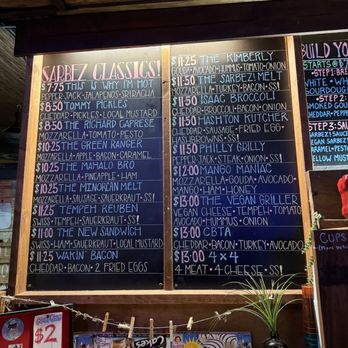 SARBEZ CLASSICS!
$7.75 THIS IS WHY I'M HOT
PEPPER JACK•JALAPENOS•SRIRACHA
$8.50 TOMMY PICKLES
CHEDDAR•PICKLES•LOCAL MUSTARD
$8.50 THE RICHARD CAPRESE
MOZZARELLA•TOMATO•PESTO
$10.25 THE GREEN RANGER
MOZZARELLA•APPLE•BACON•CARAMEL
$10.25 THE MAHALO BRO
MOZZARELLA•PINEAPPLE•HAM
$10.25 THE MINORCAN MELT
MOZZARELLA•SAUSAGE•SAUERKRAUT•SS!
$11.25 TEMPEH REUBEN
SWISS•TEMPEH•SAUERKRAUT•SS!
$11.00 THE NEW SANDWICH
SWISS•HAM•SAUERKRAUT•LOCAL MUSTARD
$11.25 WAKIN' BACON
CHEDDAR•BACON•2 FRIED EGGS
$11.25 THE KIMBERLY
GOUDA•AVOCADO•HUMMUS•TOMATO•ONION
$11.50 THE SARBEZ! MELT
MOZZARELLA•TURKEY•BACON•SS!
$11.50 ISAAC BROCCOLI
CHEDDAR•BROCCOLI•BACON•ONION
$11.50 HASHTON KUTCHER
CHEDDAR•SAUSAGE•FRIED EGG•
HASH BROWNS•SS!
$11.50 PHILLY GRILLY
PEPPER JACK•STEAK•ONION•SS!
$12.00 MANGO MANIAC
MOZZARELLA•GOUDA•AVOCADO•
MANGO•HAM•HONEY
$13.00 THE VEGAN GRILLER
VEGAN CHEESE•TEMPEH•TOMATO
AVOCADO•HUMMUS•ONION
$13.00 CBTA
CHEDDAR•BACON•TURKEY•AVOCADO
$13.00 4x4
4 MEAT•4 CHEESE•SS!
BUILD YO
STARTS@
STEP 1: BRE
WHITE•WH
SOURDOUG
STEP 2:
SMOKED
GOUDA
VEGAN
STEP 3: SA
SARBEZ SAUCE
VEGAN SARBEZ
RANCH
YELLOW MUST
CUPS
$2
Cakes